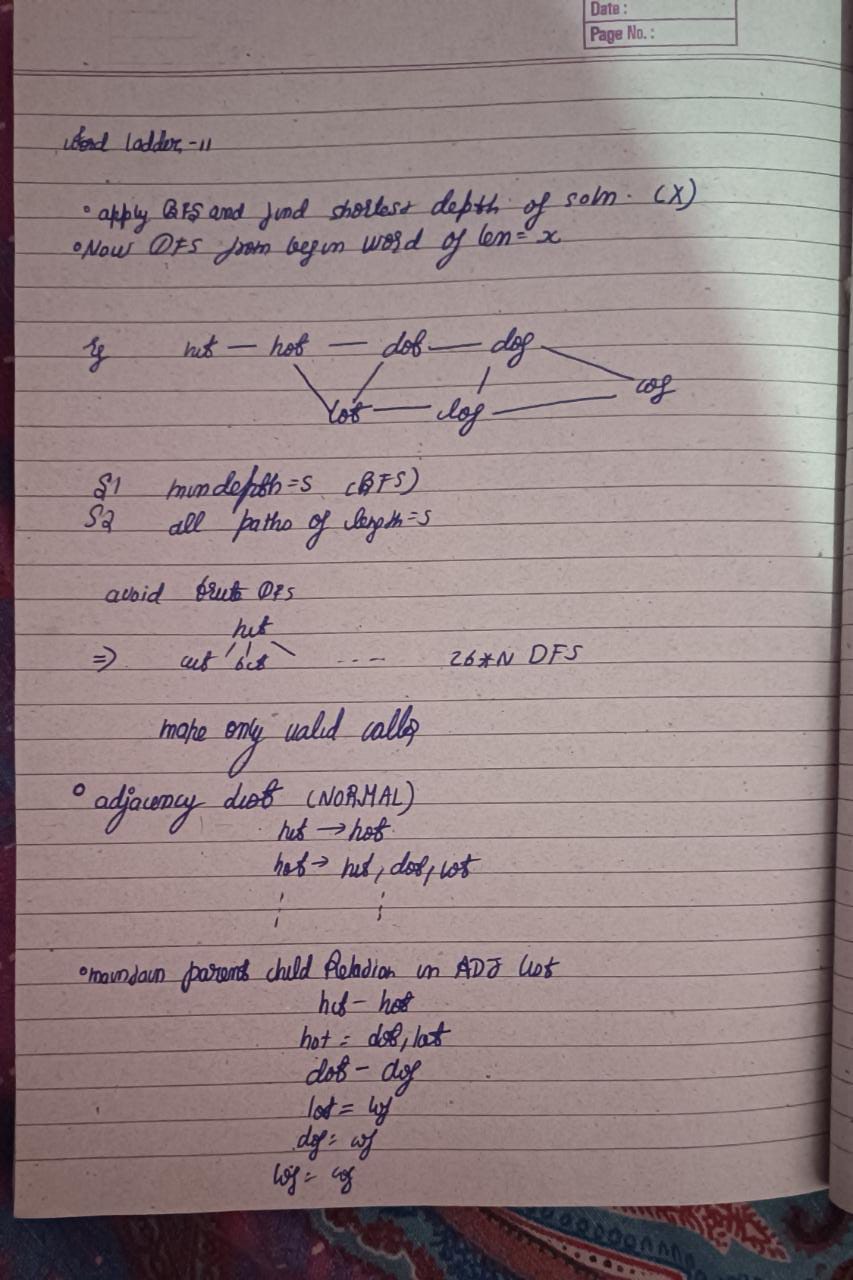 Date :
Page No. :
Word ladder-II
• apply BFS and find shortest depth of soln. (X)
• Now DFS from begin word of len = x
Eg hit — hot — dot — dog
cog
lot — log
S1 min depth = 5 (BFS)
S2 all paths of length = 5
avoid brute DFS
hit
⇒ ait bit ---- 26*N DFS
make only valid calls
• adjacency list (NORMAL)
hit → hot
hot → hit, dot, lot
• maintain parent child Relation in ADJ list
hit - hot
hot = dot, lot
dot - dog
lot = log
dog = cog
log = cog